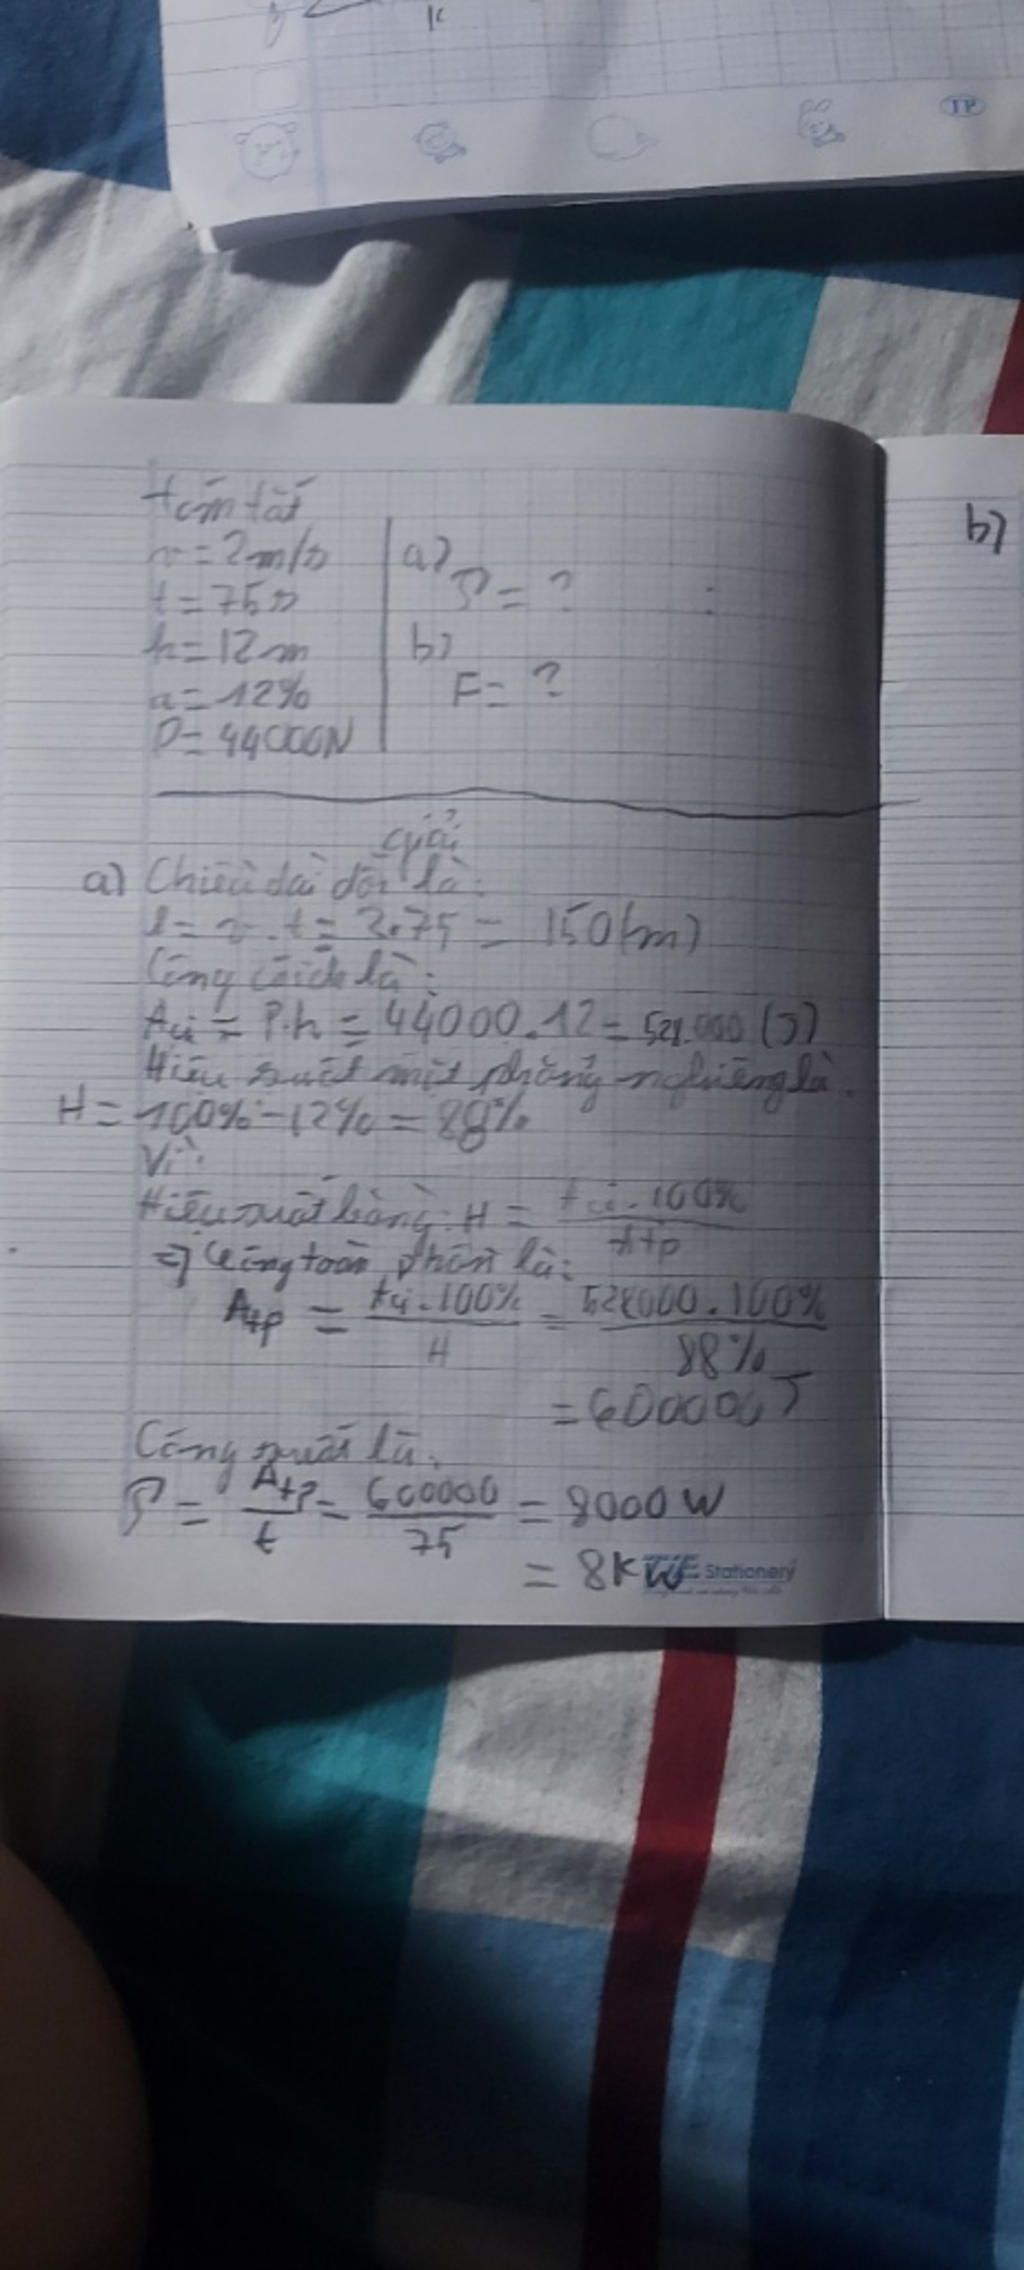 k
TP
tóm tắt
v = 2m/s
t = 75s
h = 12m
a = 12%
P = 44000N
a)
P = ?
b)
F = ?
giải
a) Chiều dài dốc là:
l = v.t = 2.75 = 150(m)
Công có ích là:
Aci = P.h = 44000.12 = 528.000 (J)
Hiệu suất mặt phẳng nghiêng là:
H = 100% - 12% = 88%
Vì:
Hiệu suất bằng: H = Aci.100% / Atp
=> Công toàn phần là:
Atp = Aci.100% / H = 528000.100% / 88%
= 600000J
Công suất là:
P = Atp / t = 600000 / 75 = 8000W
= 8kW
Stationery
b)